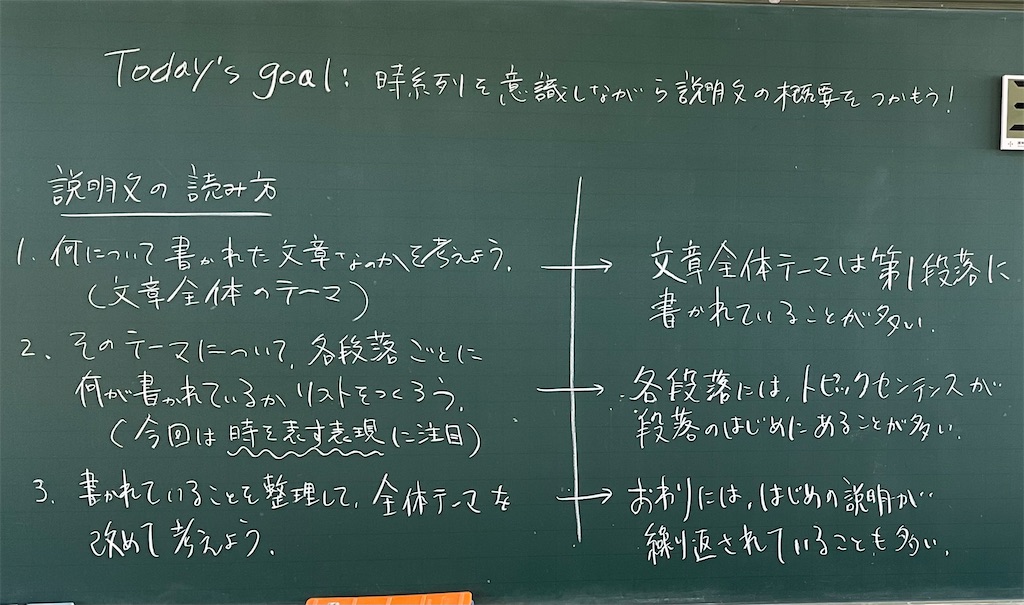 Today's goal: 時系列を意識しながら説明文の概要をつかもう!
説明文の読み方
1. 何について書かれた文章なのかを考えよう.
(文章全体のテーマ)
2. そのテーマについて,各段落ごとに
何が書かれているかリストをつくろう.
(今回は時を表す表現に注目)
3. 書かれていることを整理して,全体テーマを
改めて考えよう.
→ 文章全体テーマは第1段落に
書かれていることが多い.
→ 各段落には,トピックセンテンスが
段落のはじめにあることが多い.
→ おわりには,はじめの説明が
繰り返されていることも多い.